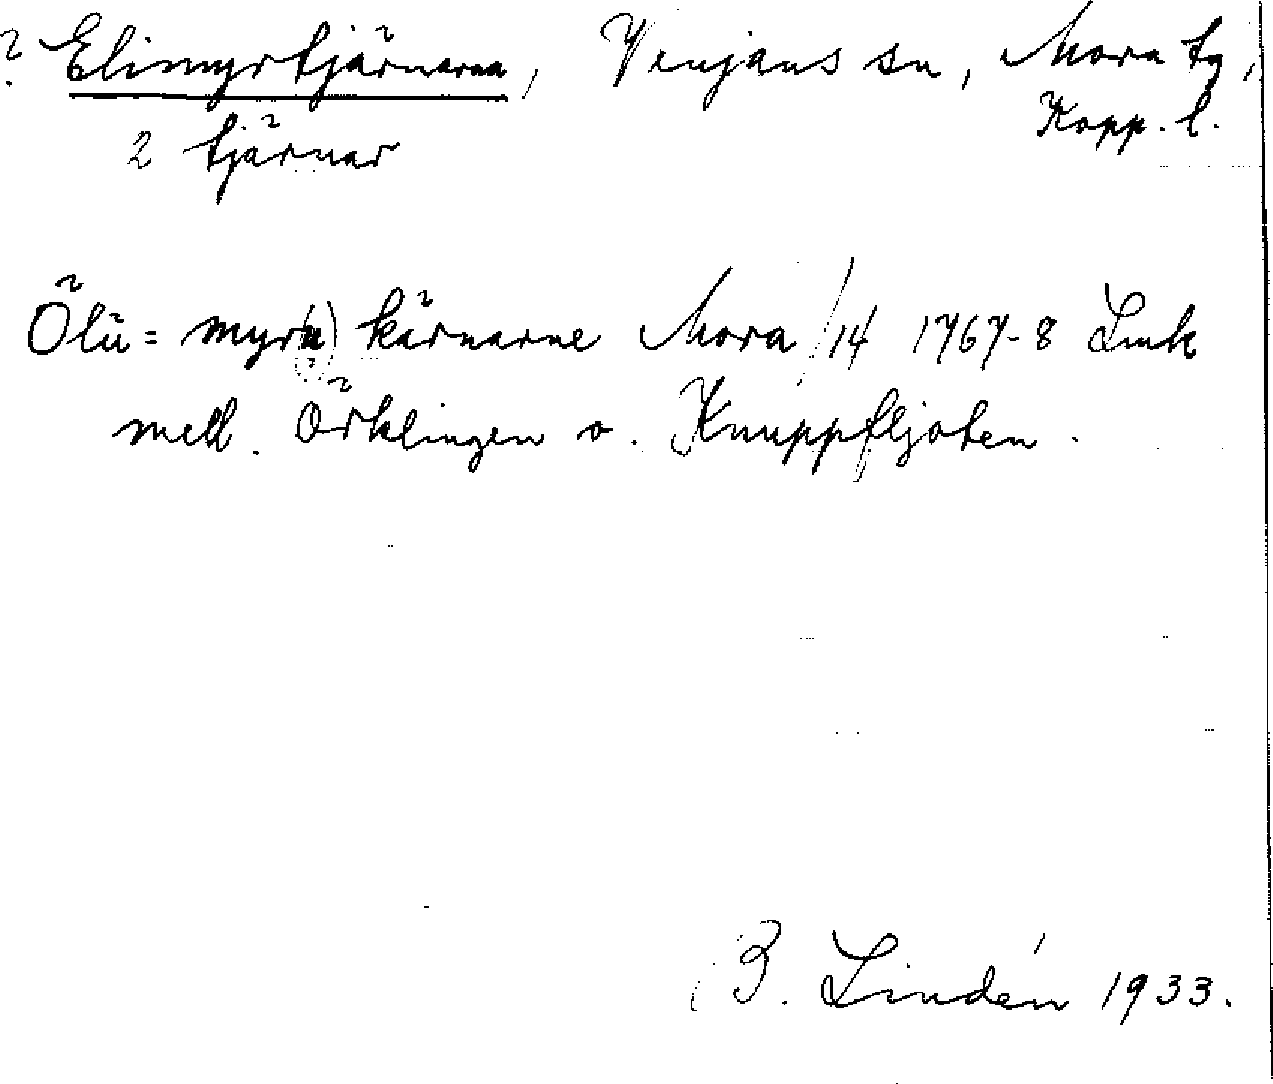 ? Elimyrtjärnarna, Venjans sn, Mora tg,
Kopp. l.
2 tjärnar
Ölü=myr(u) kärnarne Mora /14 1767-8 Lmk
mell. Örklingen o. Knuppfljoten.
B. Lindén 1933.